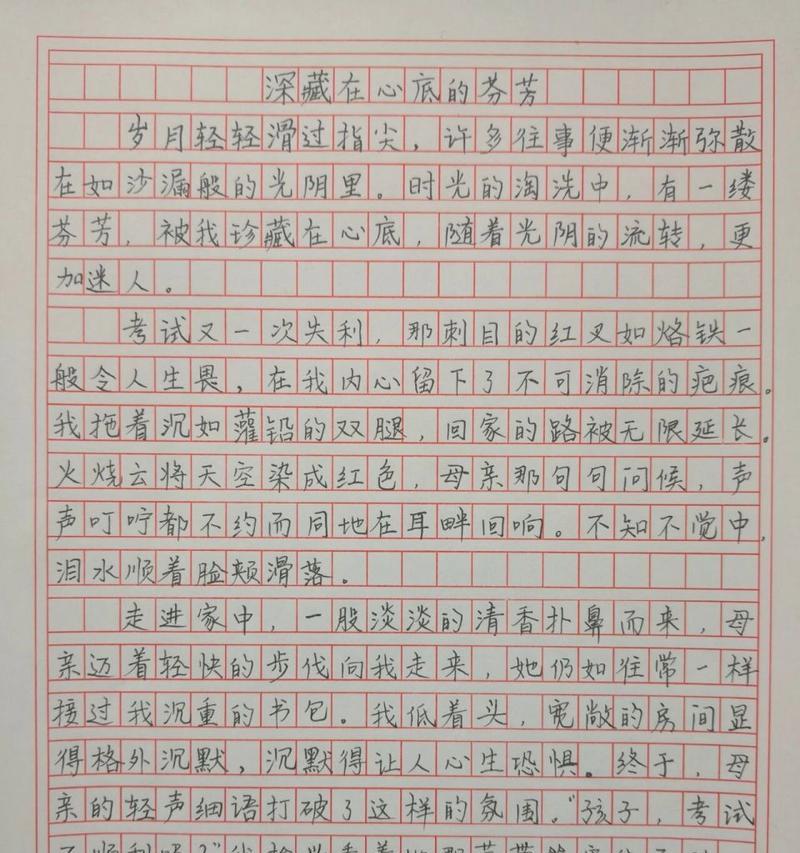 深藏在心底的芬芳
岁月轻轻滑过指尖，许多往事便渐渐弥散
在如沙漏般的光阴里。时光的淘洗中，有一缕
芬芳，被我珍藏在心底，随着光阴的流转，更
加迷人。
考试又一次失利，那刺目的红叉如烙铁一
般令人生畏，在我内心留下了不可消除的疤痕。
我拖着沉如灌铅的双腿，回家的路被无限延长。
火烧云将天空染成红色，母亲那句句问候，声
声叮咛都不约而同地在耳畔回响。不知不觉中，
泪水顺着脸颊滑落。
走进家中，一股淡淡的清香扑鼻而来，母
亲迈着轻快的步伐向我走来，她仍如往常一样
接过我沉重的书包。我低着头，宽敞的房间显
得格外沉默，沉默得让人心生恐惧。终于，母
亲的轻声细语打破了这样的氛围。“孩子，考试